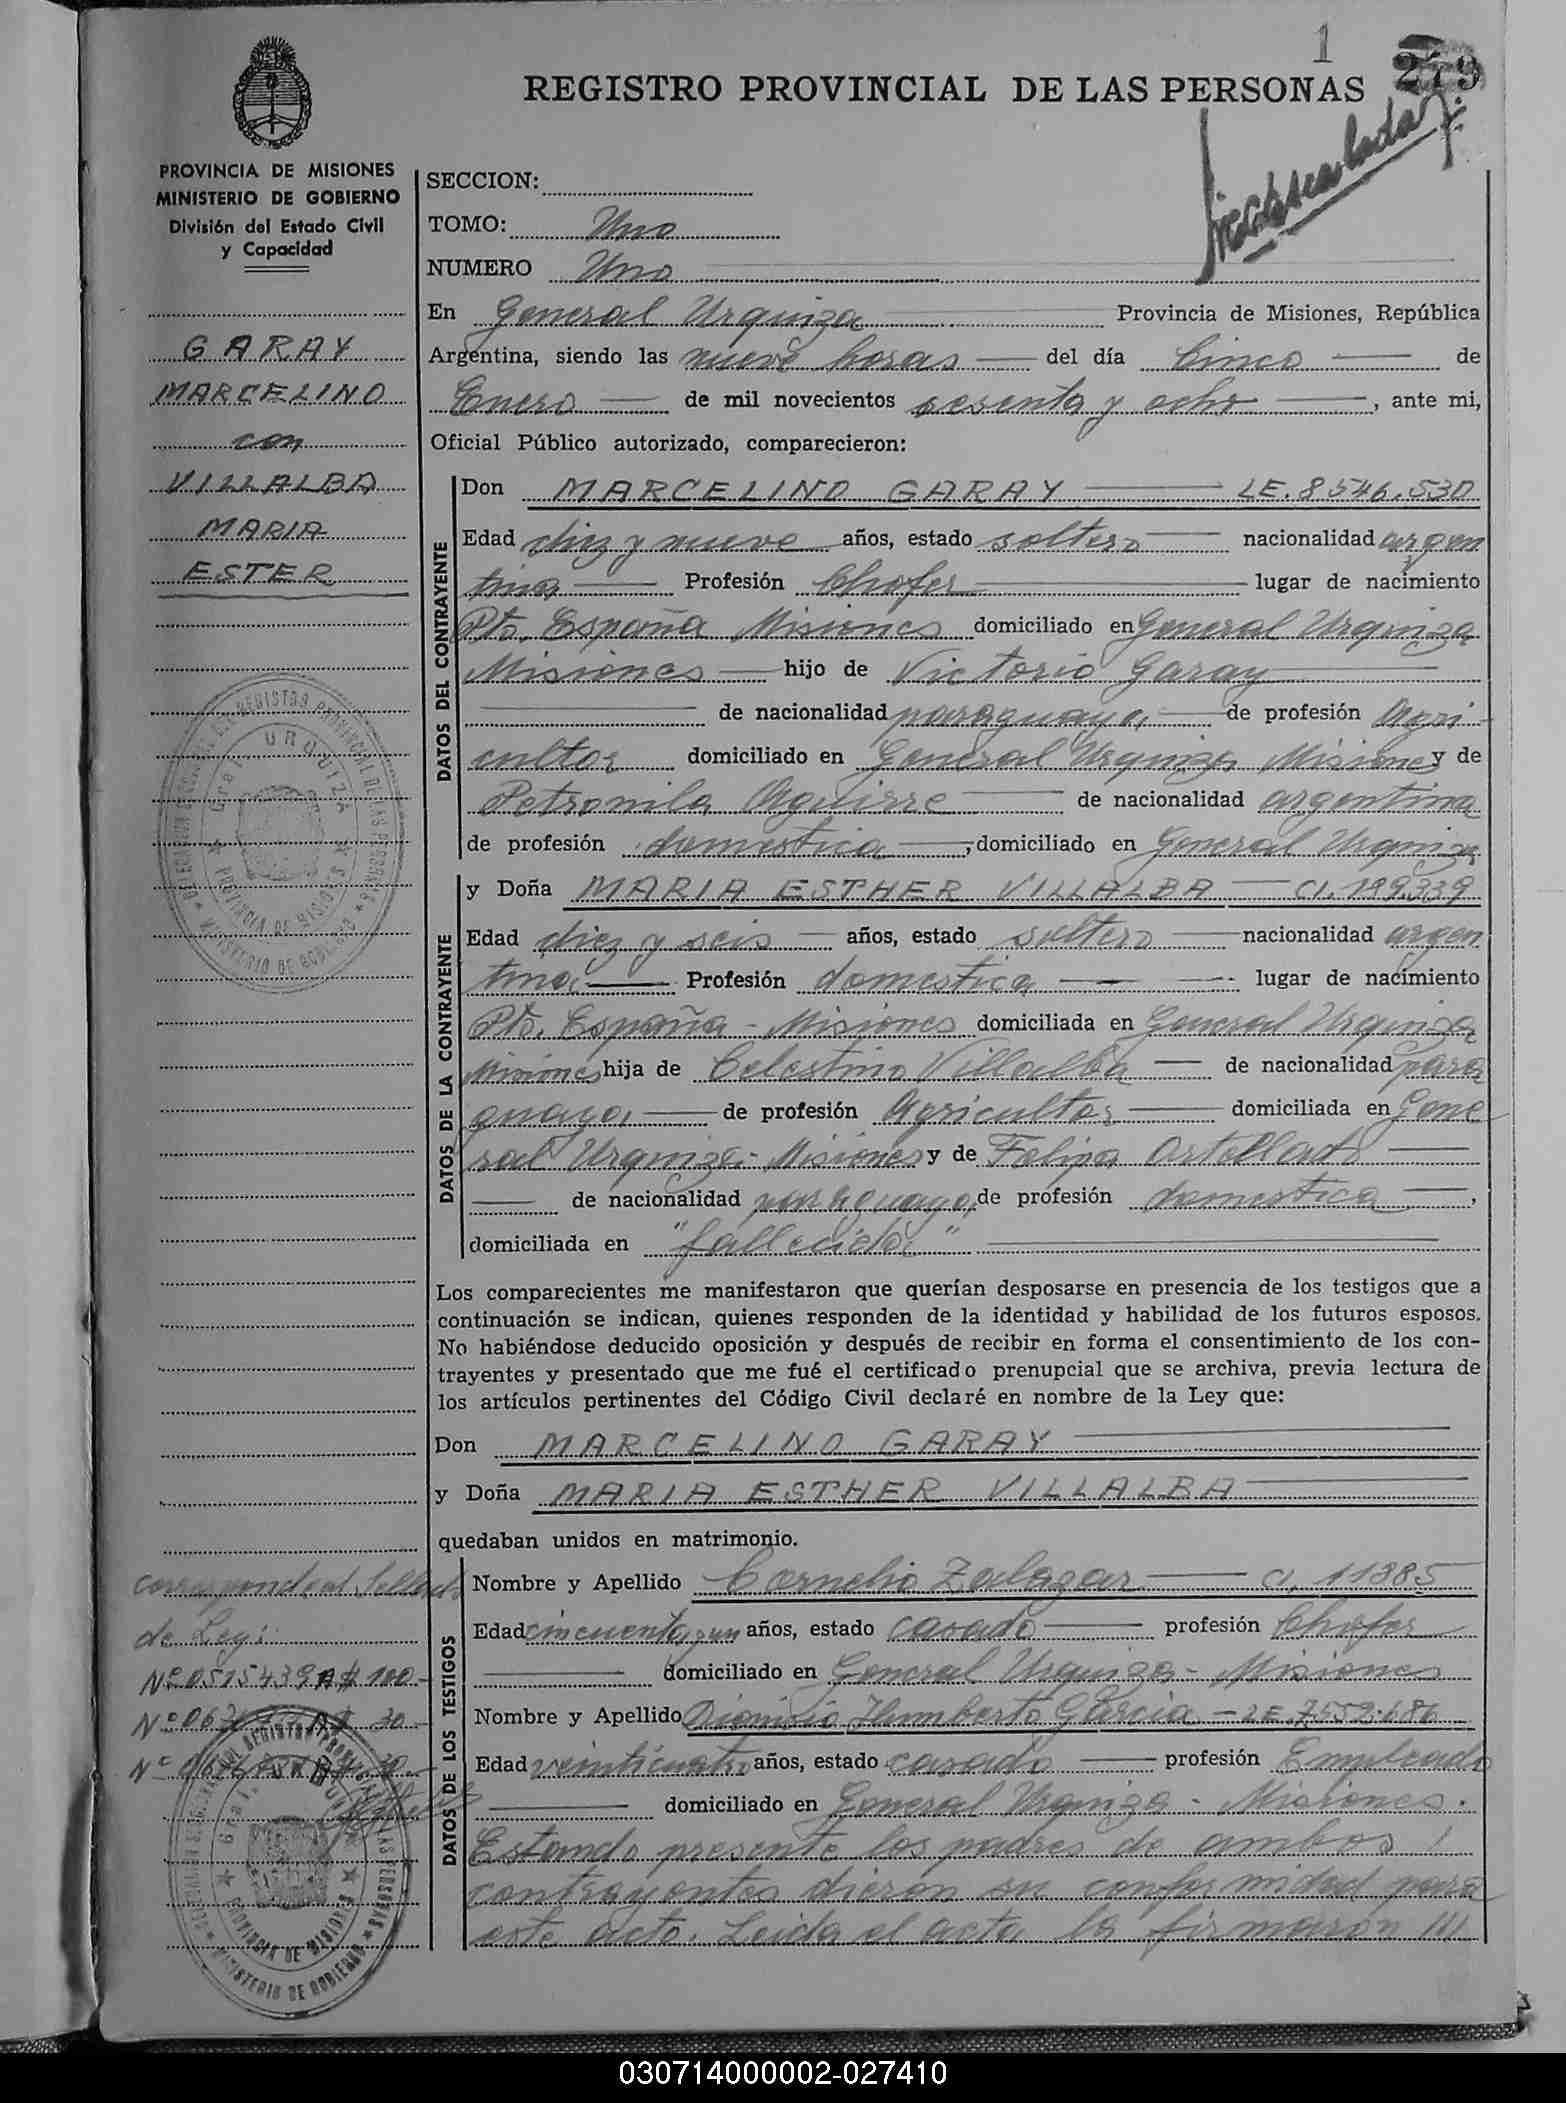 1
279
REGISTRO PROVINCIAL DE LAS PERSONAS
PROVINCIA DE MISIONES
MINISTERIO DE GOBIERNO
División del Estado Civil
y Capacidad
SECCION:
TOMO: Uno
NUMERO Uno
GARAY
MARCELINO
con
VILLALBA
MARIA
ESTER
En General Urquiza Provincia de Misiones, República
Argentina, siendo las nueve horas del día Cinco de
Enero de mil novecientos sesenta y ocho, ante mi,
Oficial Público autorizado, comparecieron:
DATOS DEL CONTRAYENTE
Don MARCELINO GARAY LE. 8546.530
Edad diez y nueve años, estado soltero nacionalidad argen
tina Profesión Chofer lugar de nacimiento
Pto. España Misiones domiciliado en General Urquiza
Misiones hijo de Victorio Garay
de nacionalidad paraguaya, de profesión Agri-
cultor domiciliado en General Urquiza Misiones y de
Petronila Aguirre de nacionalidad argentina
de profesión domestica, domiciliado en General Urquiza
DATOS DE LA CONTRAYENTE
y Doña MARIA ESTHER VILLALBA CI. 199.339
Edad diez y seis años, estado soltero nacionalidad argen
tina Profesión domestica lugar de nacimiento
Pto. España - Misiones domiciliada en General Urquiza
Misiones hija de Celestino Villalba de nacionalidad para
guaya, de profesión Agricultor domiciliada en Gene
ral Urquiza - Misiones y de Felipa Ortellado
de nacionalidad paraguaya, de profesión domestica,
domiciliada en "fallecida"
Los comparecientes me manifestaron que querían desposarse en presencia de los testigos que a
continuación se indican, quienes responden de la identidad y habilidad de los futuros esposos.
No habiéndose deducido oposición y después de recibir en forma el consentimiento de los con-
trayentes y presentado que me fué el certificado prenupcial que se archiva, previa lectura de
los artículos pertinentes del Código Civil declaré en nombre de la Ley que:
Don MARCELINO GARAY
y Doña MARIA ESTHER VILLALBA
quedaban unidos en matrimonio.
DATOS DE LOS TESTIGOS
Nombre y Apellido Cornelio Zalazar CI. 11385
Edad cincuenta y un años, estado casado profesión Chofer
domiciliado en General Urquiza - Misiones
Nombre y Apellido Dionisio Humberto Garcia - LE. 7.552.686
Edad veinticuatro años, estado casado profesión Empleado
domiciliado en General Urquiza - Misiones.
Estando presente los padres de ambos
contrayentes dieron su conformidad para
este acto. Leida el acta la firmaron
de Ley:
Nº 0515439 A $ 100.-
GRAL. URQUIZA
PROVINCIA DE MISIONES
MINISTERIO DE GOBIERNO
030714000002-027410